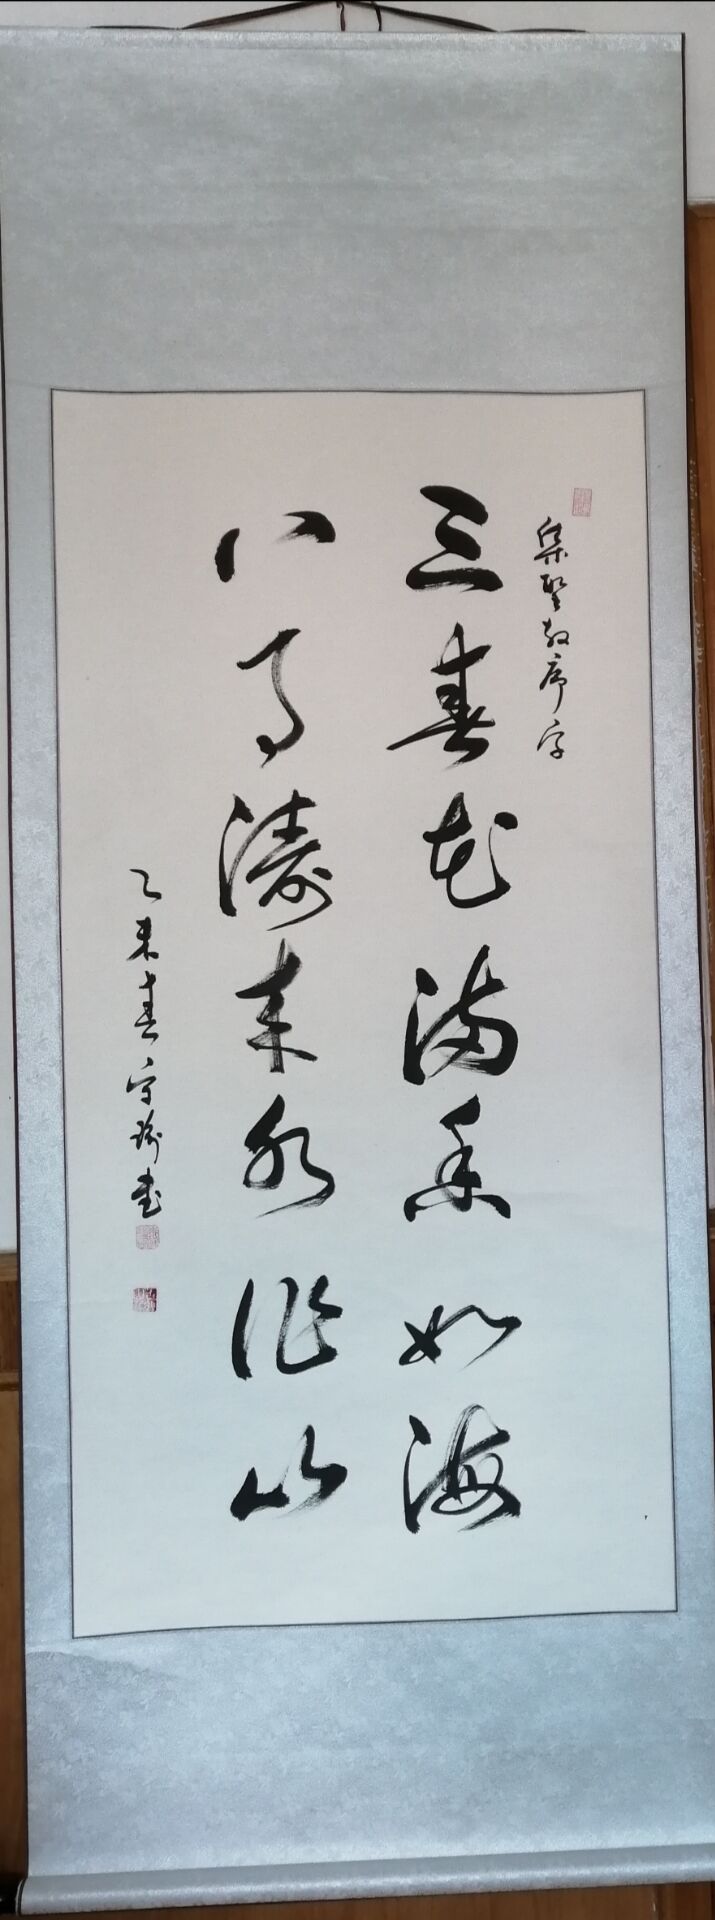 集聖教序字
三春花滿香如海
八月濤來水作山
乙未春守瑜書